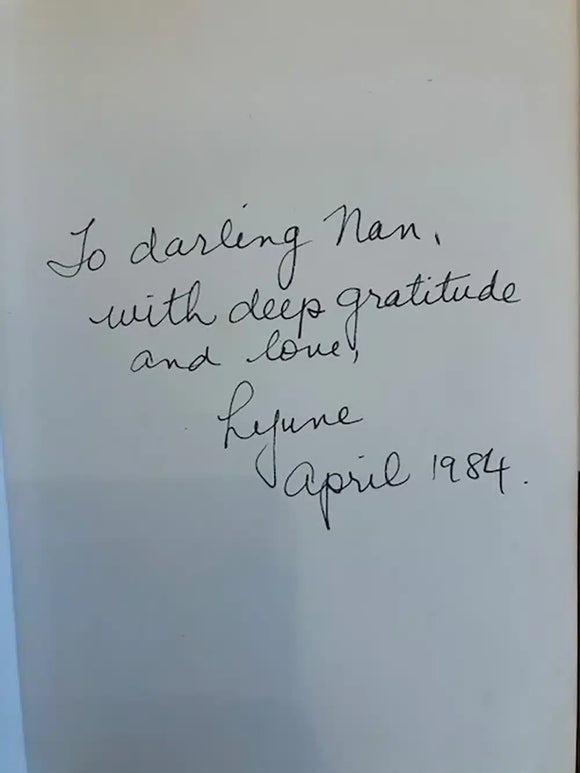 To darling Nan,
with deep gratitude
and love,
April 1984.